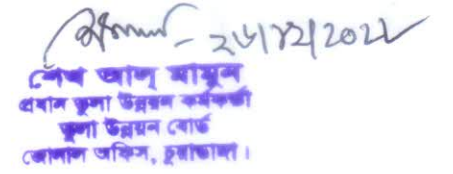 ২৬/১২/২০২২
শেখ আল্ মামুন
প্রধান তুলা উন্নয়ন কর্মকর্তা
তুলা উন্নয়ন বোর্ড
জোনাল অফিস, চুয়াডাঙ্গা।